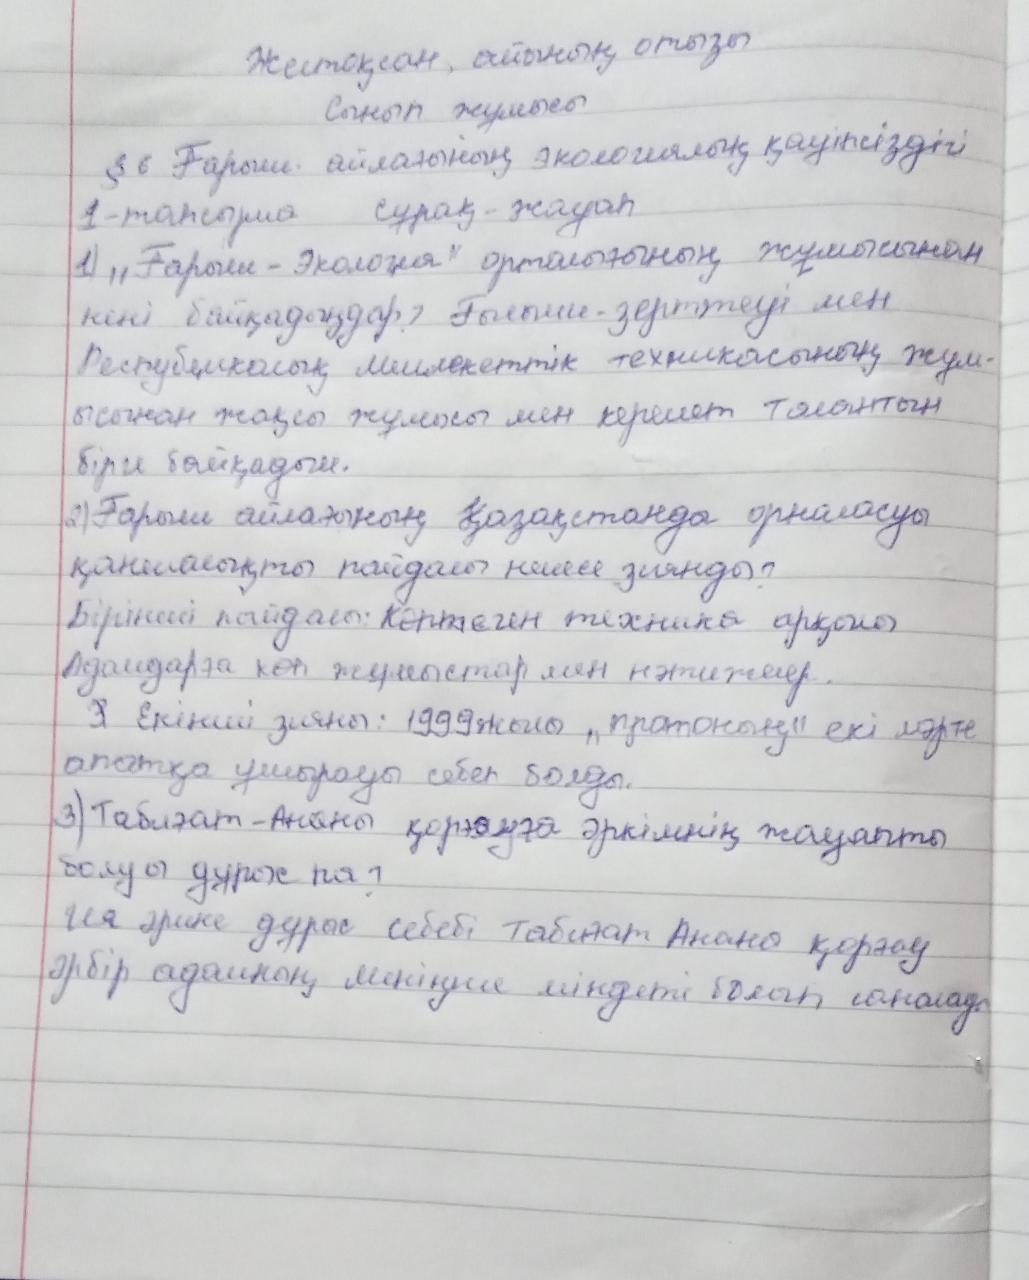 Желтоқсан, айының отызы
Сынып жұмысы
§6 Ғарыш айлағының экологиялық қауіпсіздігі
1-тапсырма сұрақ-жауап
1) „Ғарыш-Экология" орталығының жұмысынан
нені байқадыңдар? Ғылыми-зерттеуі мен
Республикалық Мемлекеттік техникасының жұм-
ысынан жақсы жұмысы мен керемет талантын
бірге байқадым.
2) Ғарыш айлағының Қазақстанда орналасуы
қаншалықты пайдалы немесе зиянды?
Бірінші пайдалы: Көптеген техника арқылы
Адамдарға көп жұмыстар мен нәтижелер.
Екінші зияны: 1999жылы „протонның" екі мәрте
апатқа ұшырауы себеп болды.
3) Табиғат-Ананы қорғауға әркімнің жауапты
болуы дұрыс па?
Ия әрине дұрыс себебі Табиғат Анана қорғау
әрбір адамның меніңше міндеті болып саналад